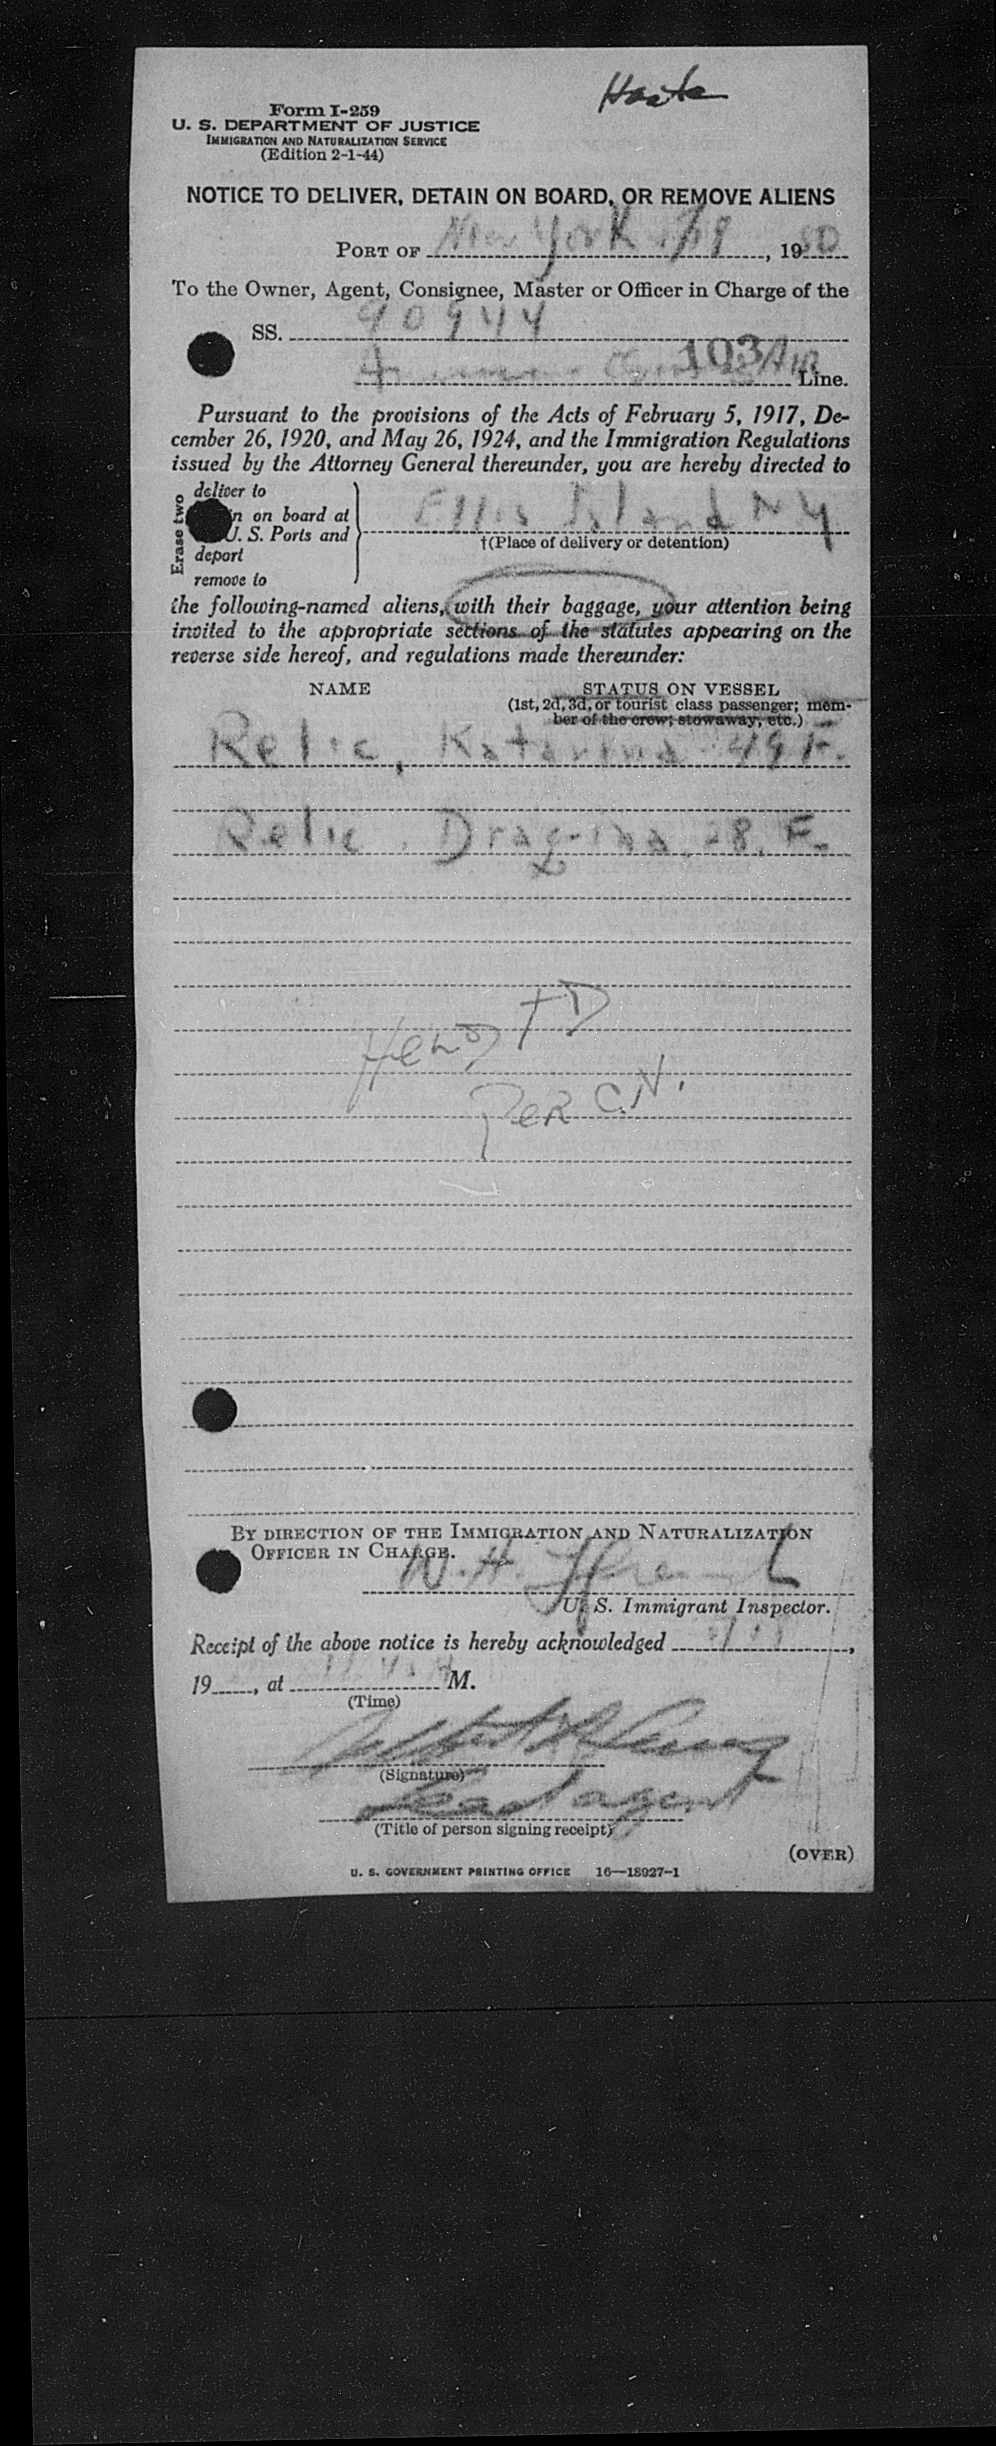 Form I-259
U. S. DEPARTMENT OF JUSTICE
IMMIGRATION AND NATURALIZATION SERVICE
(Edition 2-1-44)
NOTICE TO DELIVER, DETAIN ON BOARD, OR REMOVE ALIENS
PORT OF New York, 1950
To the Owner, Agent, Consignee, Master or Officer in Charge of the
SS. 90944
103
Line.
Pursuant to the provisions of the Acts of February 5, 1917, De-
cember 26, 1920, and May 26, 1924, and the Immigration Regulations
issued by the Attorney General thereunder, you are hereby directed to
Erase two
deliver to
on board at
U. S. Ports and
deport
remove to
Ellis Island N Y
†(Place of delivery or detention)
the following-named aliens, with their baggage, your attention being
invited to the appropriate sections of the statutes appearing on the
reverse side hereof, and regulations made thereunder:
NAME STATUS ON VESSEL
(1st, 2d, 3d, or tourist class passenger; mem-
ber of the crew; stowaway, etc.)
Relic, Katarina 49 F.
Relic, Dragina, 28. F.
Held TD
Per C.N.
BY DIRECTION OF THE IMMIGRATION AND NATURALIZATION
OFFICER IN CHARGE.
W. H.
U. S. Immigrant Inspector.
Receipt of the above notice is hereby acknowledged
19, at M.
(Time)
(Signature)
agent
(Title of person signing receipt)
(OVER)
U. S. GOVERNMENT PRINTING OFFICE 16—18927-1